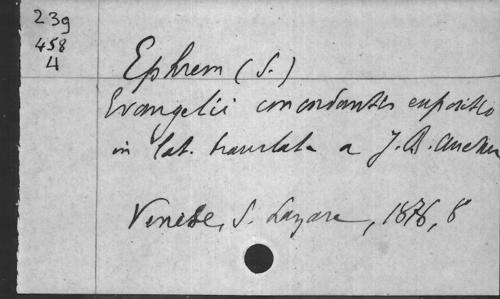 239
458
4
Ephrem (S.)
Evangelii concordantis expositio
in lat. translata a J. B. Aucher
Venise, S. Lazare, 1876, 8°